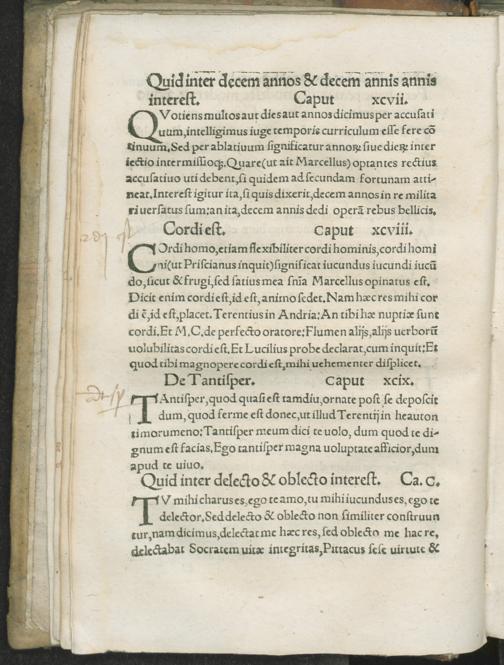 Quid inter decem annos & decem annis annis
interest. Caput xcvii.
QVotiens multos aut dies aut annos dicimus per accusati
uum, intelligimus iuge temporis curriculum esse fere cõ
tinuum. Sed per ablatiuum significatur annoꝝ siue dieꝝ inter
iectio intermissioq;. Quare (ut ait Marcellus) optantes rectius
accusatiuo uti debent, si quidem ad secundam fortunam atti-
neat. Interest igitur ita, si quis dixerit, decem annos in re milita
ri uersatus sum: an ita, decem annis dedi operã rebus bellicis.
Cordi est. Caput xcviii.
COrdi homo, etiam flexibiliter cordi hominis, cordi homi
ni (ut Priscianus inquit) significat iucundus iucundi iucũ
do, sicut & frugi, sed satius mea sñia Marcellus opinatus est.
Dicit enim cordi est, id est, animo sedet. Nam hæc res mihi cor
di ẽ, id est, placet. Terentius in Andria: An tibi hæ nuptiæ sunt
cordi. Et M. C. de perfecto oratore: Flumen alijs, alijs uerborũ
uolubilitas cordi est. Et Lucilius probe declarat, cum inquit: Et
quod tibi magnopere cordi est, mihi uehementer displicet.
De Tantisper. Caput xcix.
TAntisper, quod quasi est tamdiu, ornate post se deposcit
dum, quod ferme est donec, ut illud Terentij in heauton
timorumeno: Tantisper meum dici te uolo, dum quod te di-
gnum est facias, Ego tantisper magna uoluptate afficior, dum
apud te uiuo.
Quid inter delecto & oblecto interest. Ca. C.
TV mihi charus es, ego te amo, tu mihi iucundus es, ego te
delector. Sed delecto & oblecto non similiter construun
tur, nam dicimus, delectat me hæc res, sed oblecto me hac re,
delectabat Socratem uitæ integritas, Pittacus sese uirtute &